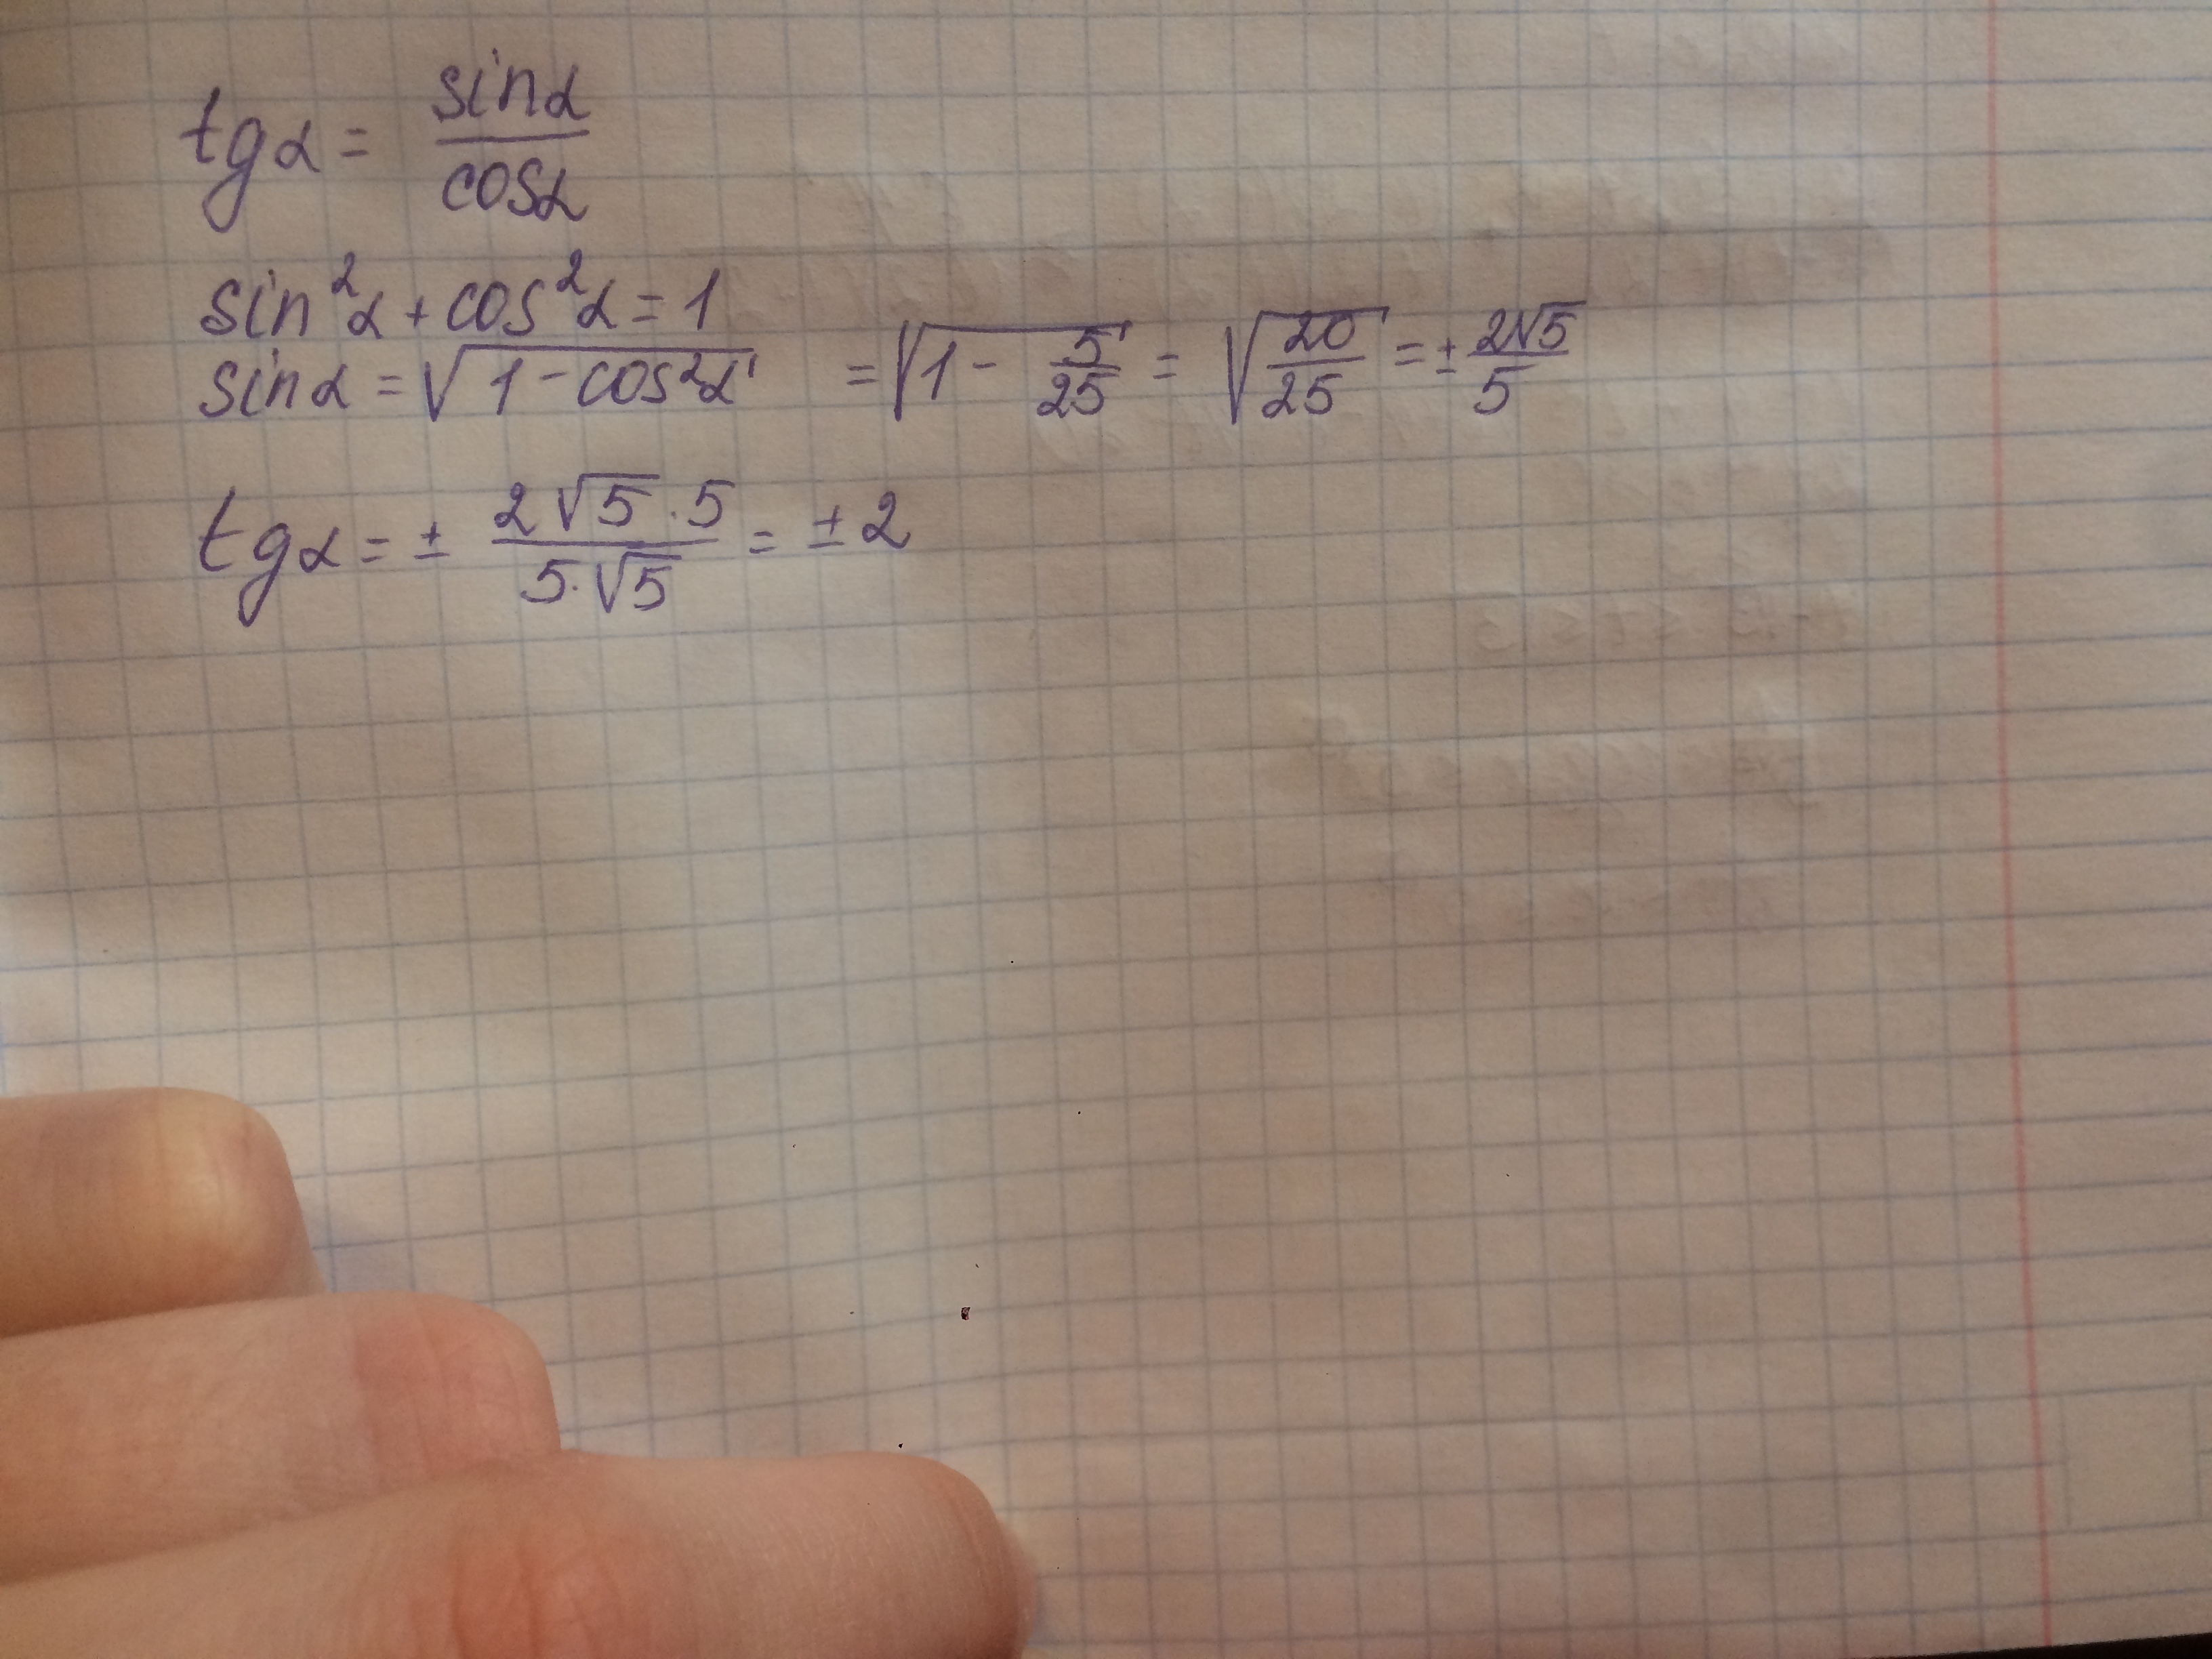 tgα = sinα/cosα
sin²α + cos²α = 1
sinα = √(1 - cos²α) = √(1 - 5/25) = √(20/25) = ± 2√5/5
tgα = ± (2√5 · 5)/(5 · √5) = ± 2